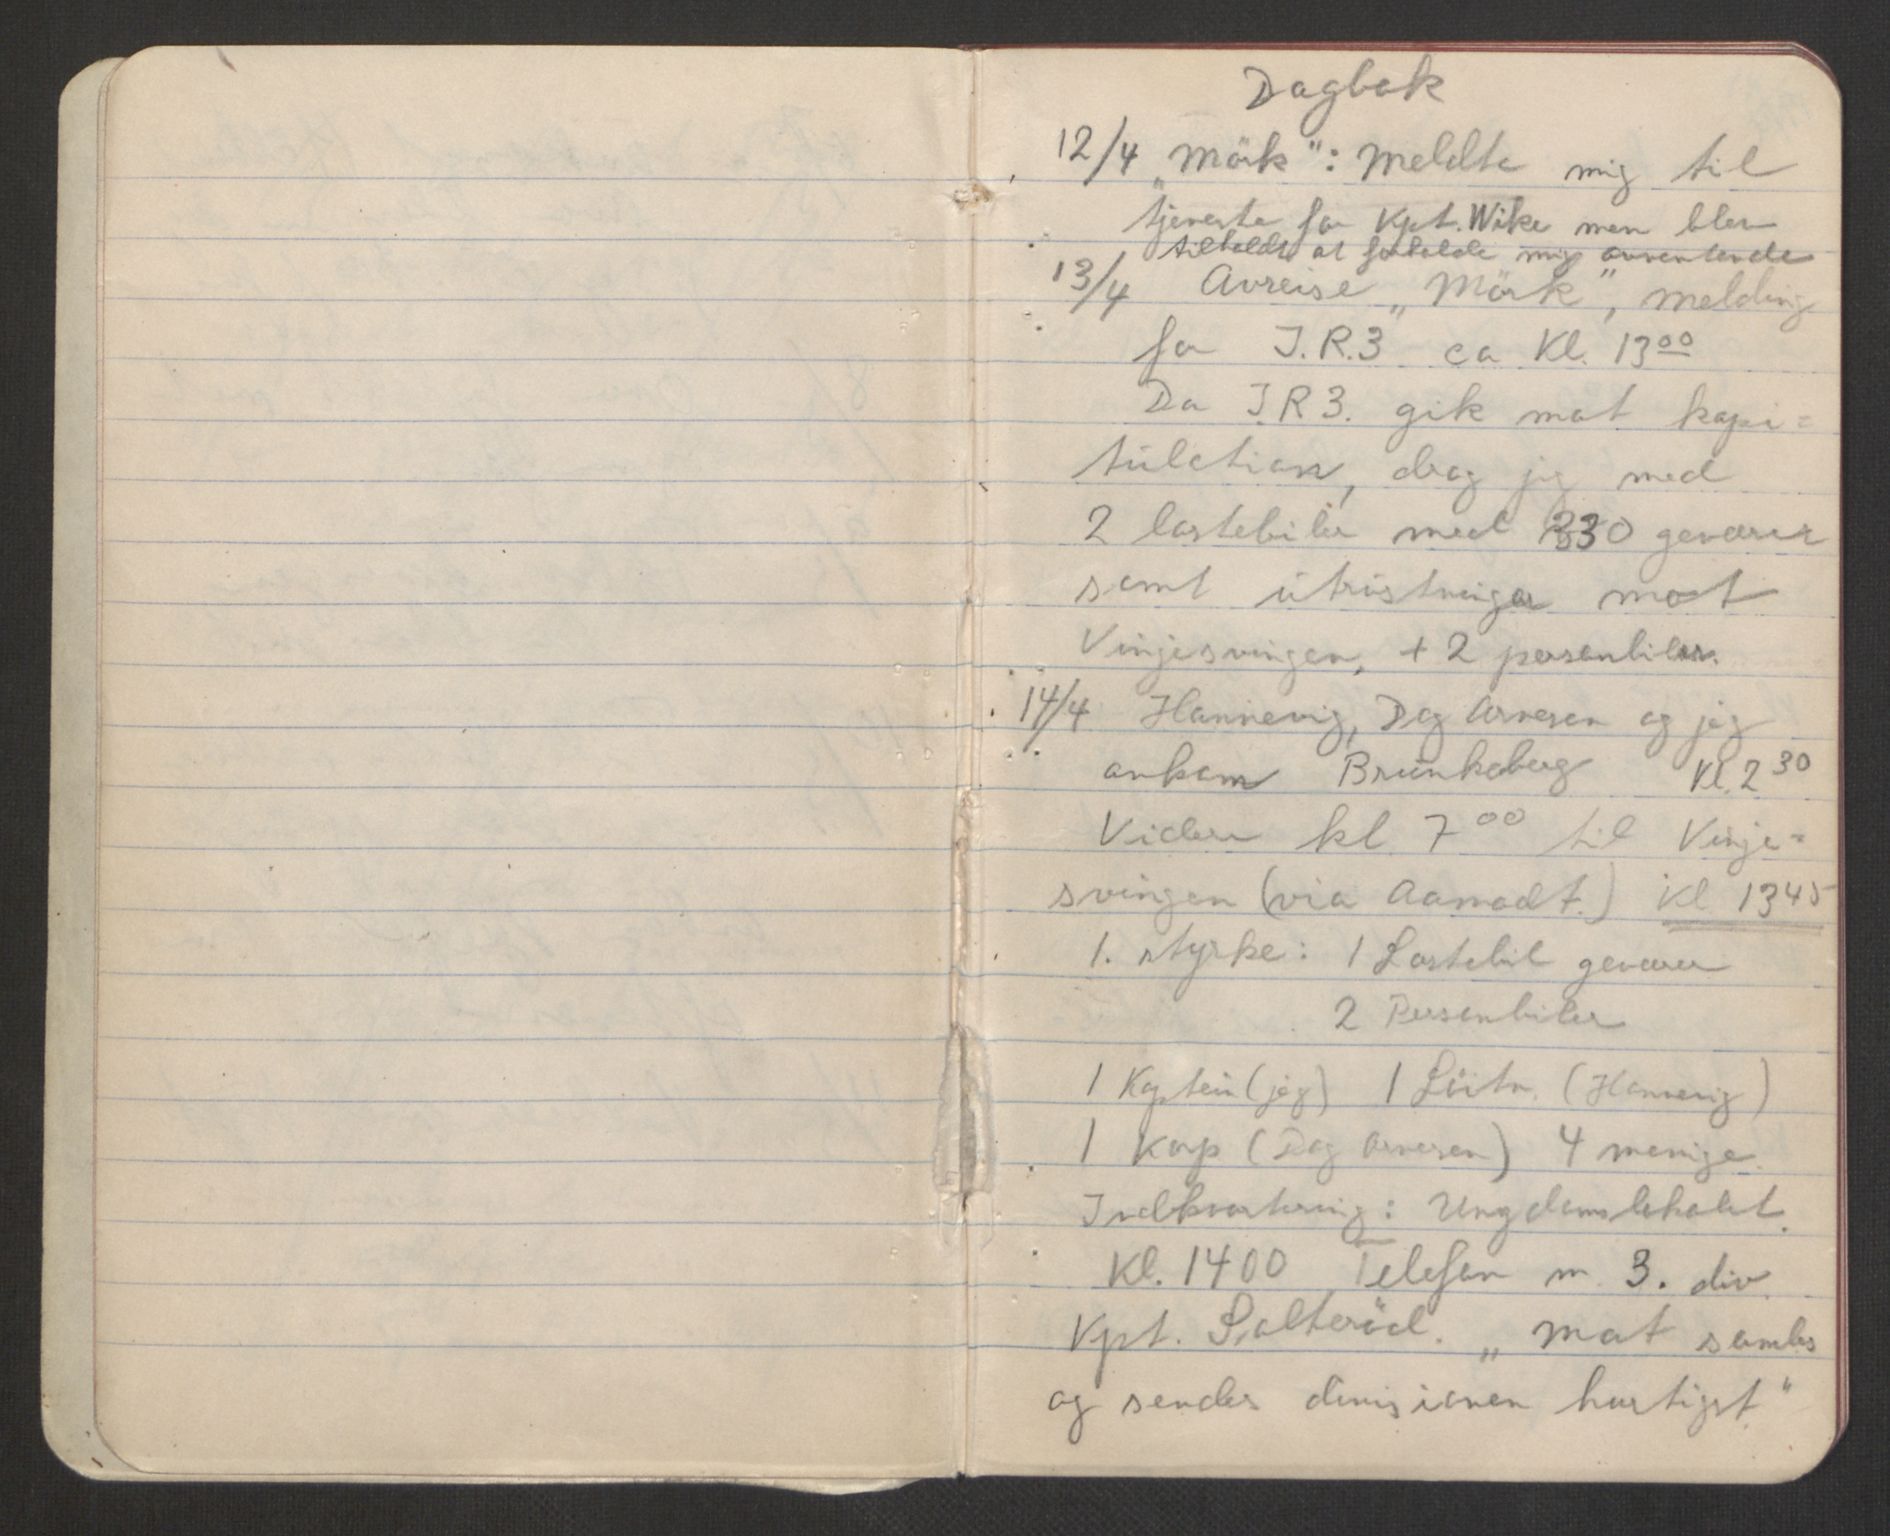 Dagbok
12/4 „Mörk": Meldte mig til
tjeneste for Kpt. Wike men blev
tilholdt at forholde mig avventende
13/4 Avreise „Mörk", melding
for I.R.3 ca Kl. 13⁰⁰
Da I.R 3. gik mot kapi=
tulation, drog jeg med
2 lastebiler med 330 geværer
samt utrustninger mot
Vinjesvingen, + 2 personbiler.
14/4 Hannevig, Dag Arnesen og jeg
ankom Brunkeberg Kl. 2³⁰
Videre kl 7⁰⁰ til Vinje=
svingen (via Aamodt.) Kl 13⁴⁵
1. styrke: 1 Lastebil geværer
2 Personbiler
1 Kaptein (jeg) 1 Löitn. (Hannevig)
1 Korp (Dag Arnesen) 4 menige.
Indkvartering: Ungdomslokalet.
Kl. 1400 Telefon m. 3. div.
Kpt. Salteröd. „Mat samles
og sendes divisionen hurtigst"